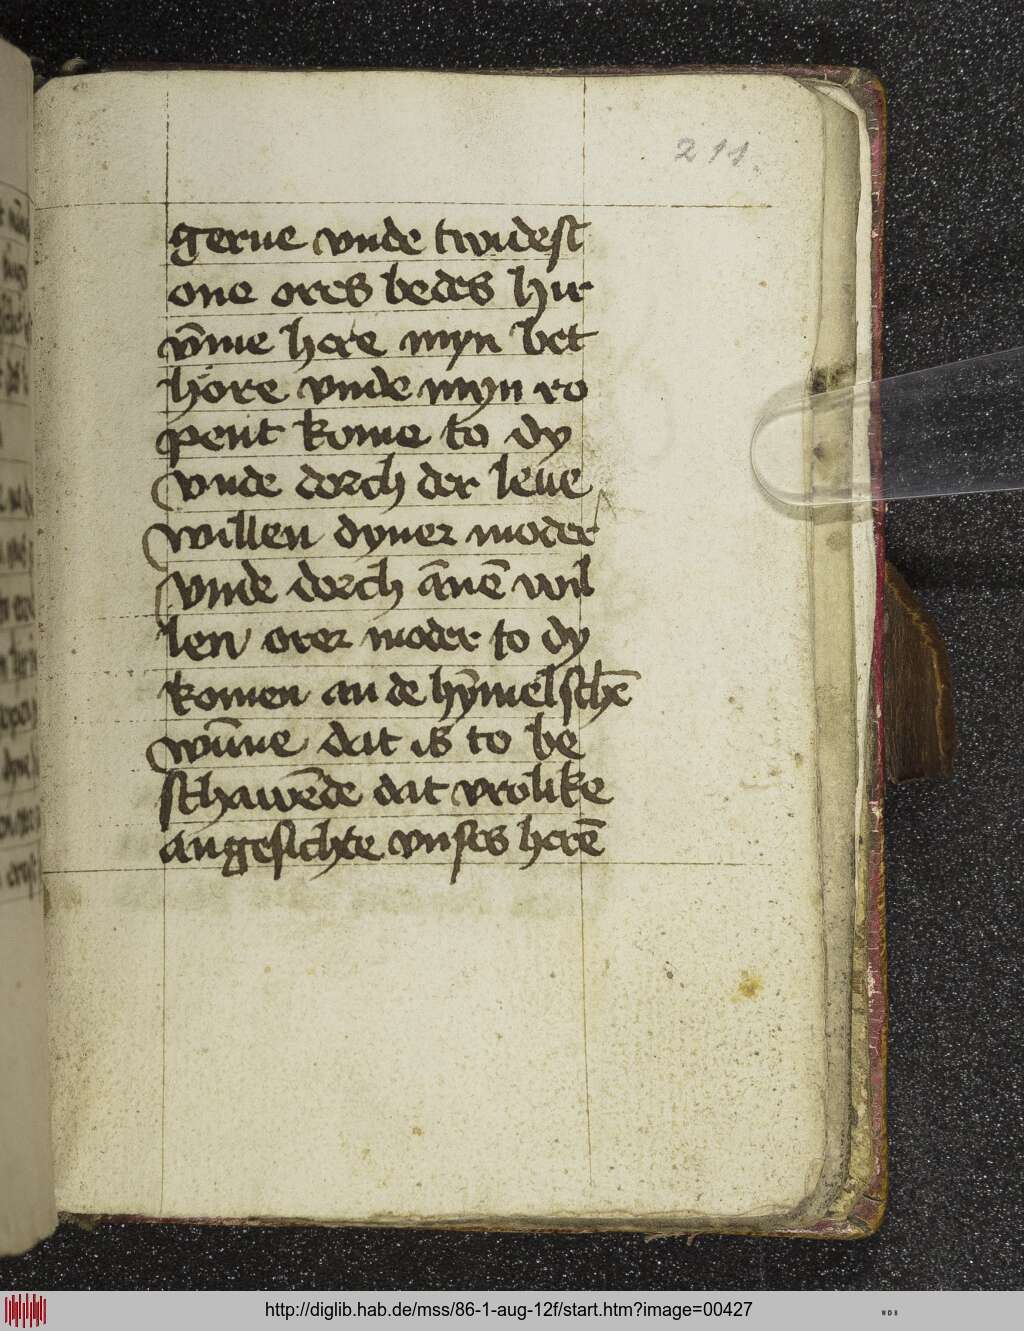 211
gerne vnde twidest
one ores bedes hir
vm̄e here myn bet
hore vnde myn ro
pent kome to dy
vnde dorch der leue
willen dyner moder
vnde dorch āneē wil
len orer moder to dy
komen an de hȳmelschē
wūne dat is to be
schawēde dat vrolike
angesichte vnses herē
http://diglib.hab.de/mss/86-1-aug-12f/start.htm?image=00427